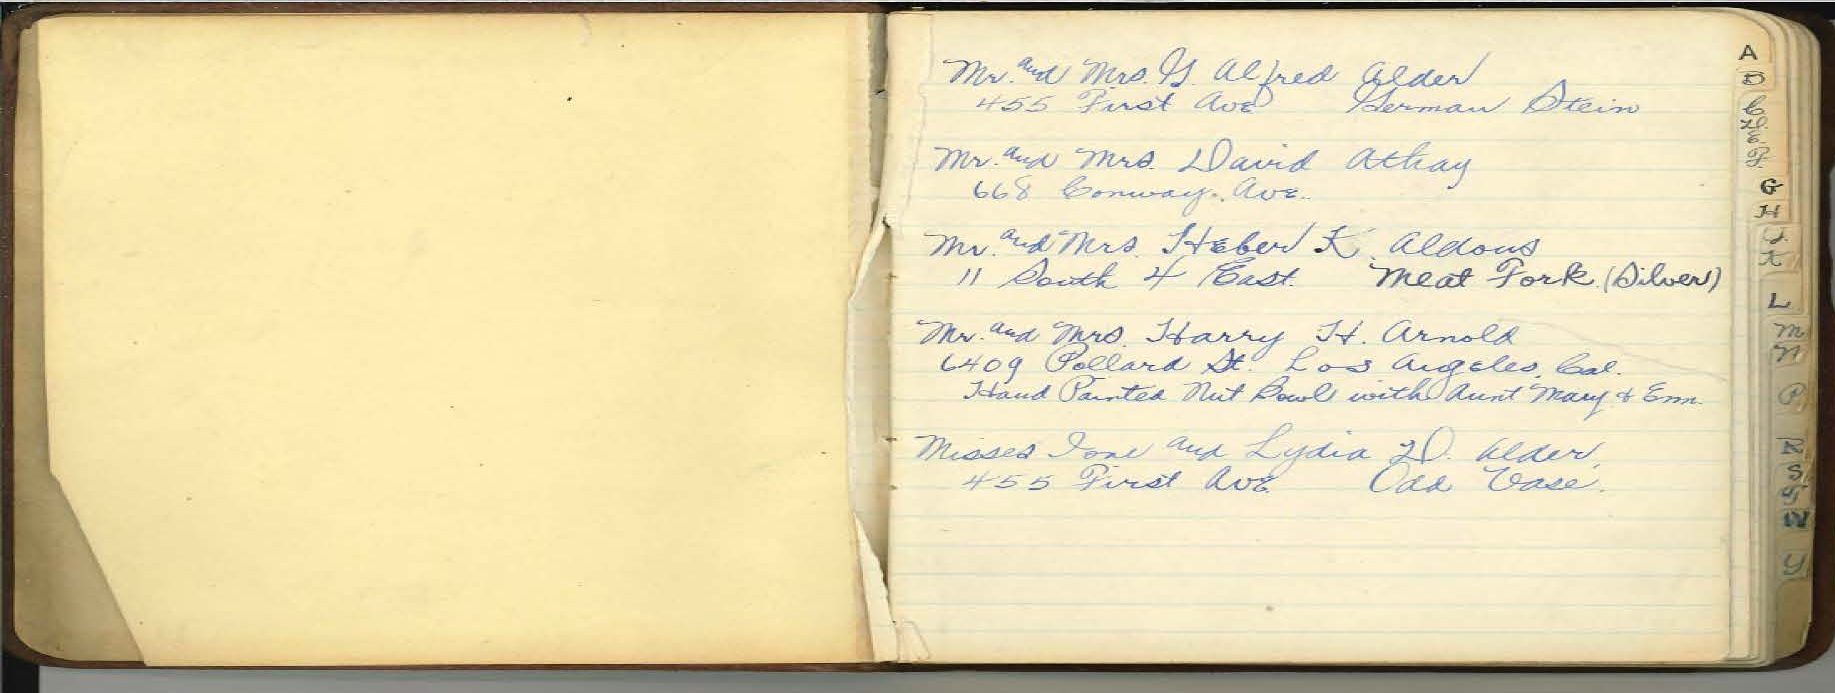 Mr. and Mrs. G. Alfred Alder
455 First Ave German Stein
Mr. and Mrs. David Athay
668 Conway Ave.
Mr. and Mrs. Heber K. Aldous
11 South 4 East. Meat Fork (Silver)
Mr. and Mrs. Harry H. Arnold
6409 Pollard St. Los Angeles, Cal.
Hand Painted Nut Bowl with Aunt Mary & Em.
Misses Ione and Lydia D. Alder,
455 First Ave. Odd Vase.
A
B
C
D
E
F
G
H
J
K
L
M
N
P
R
S
T
W
Y